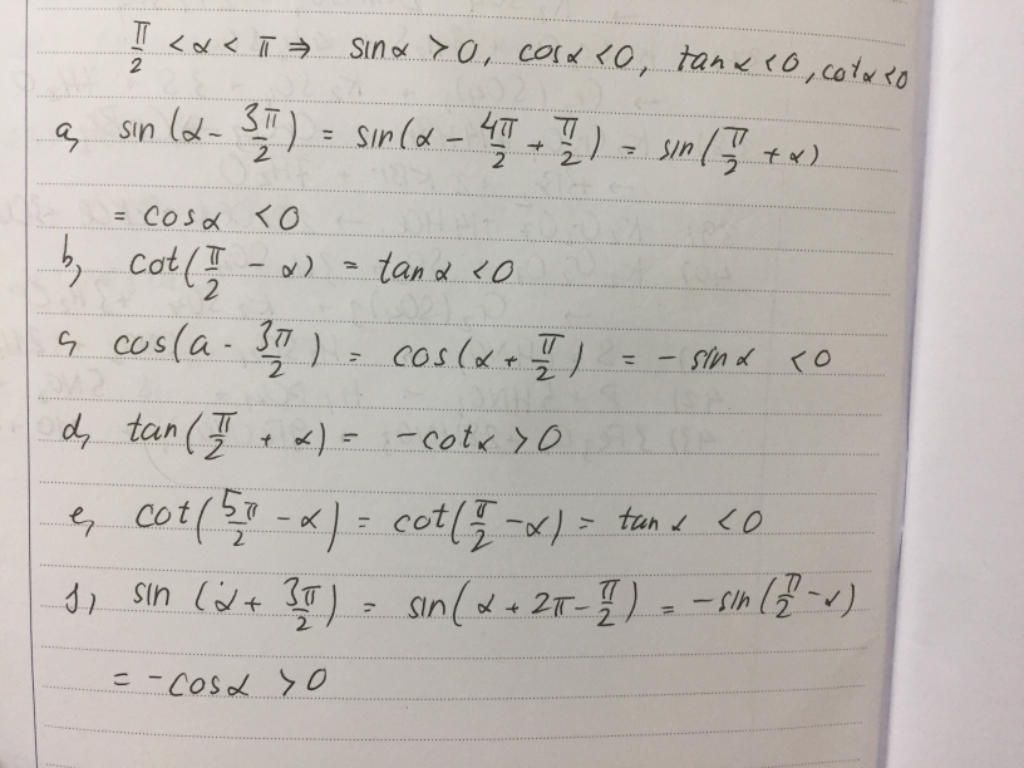 π/2 < α < π ⇒ sinα > 0, cosα < 0, tanα < 0, cotα < 0
a, sin(α - 3π/2) = sin(α - 4π/2 + π/2) = sin(π/2 + α)
= cosα < 0
b, cot(π/2 - α) = tanα < 0
c, cos(a - 3π/2) = cos(α + π/2) = -sinα < 0
d, tan(π/2 + α) = -cotα > 0
e, cot(5π/2 - α) = cot(π/2 - α) = tanα < 0
f, sin(α + 3π/2) = sin(α + 2π - π/2) = -sin(π/2 - α)
= -cosα > 0